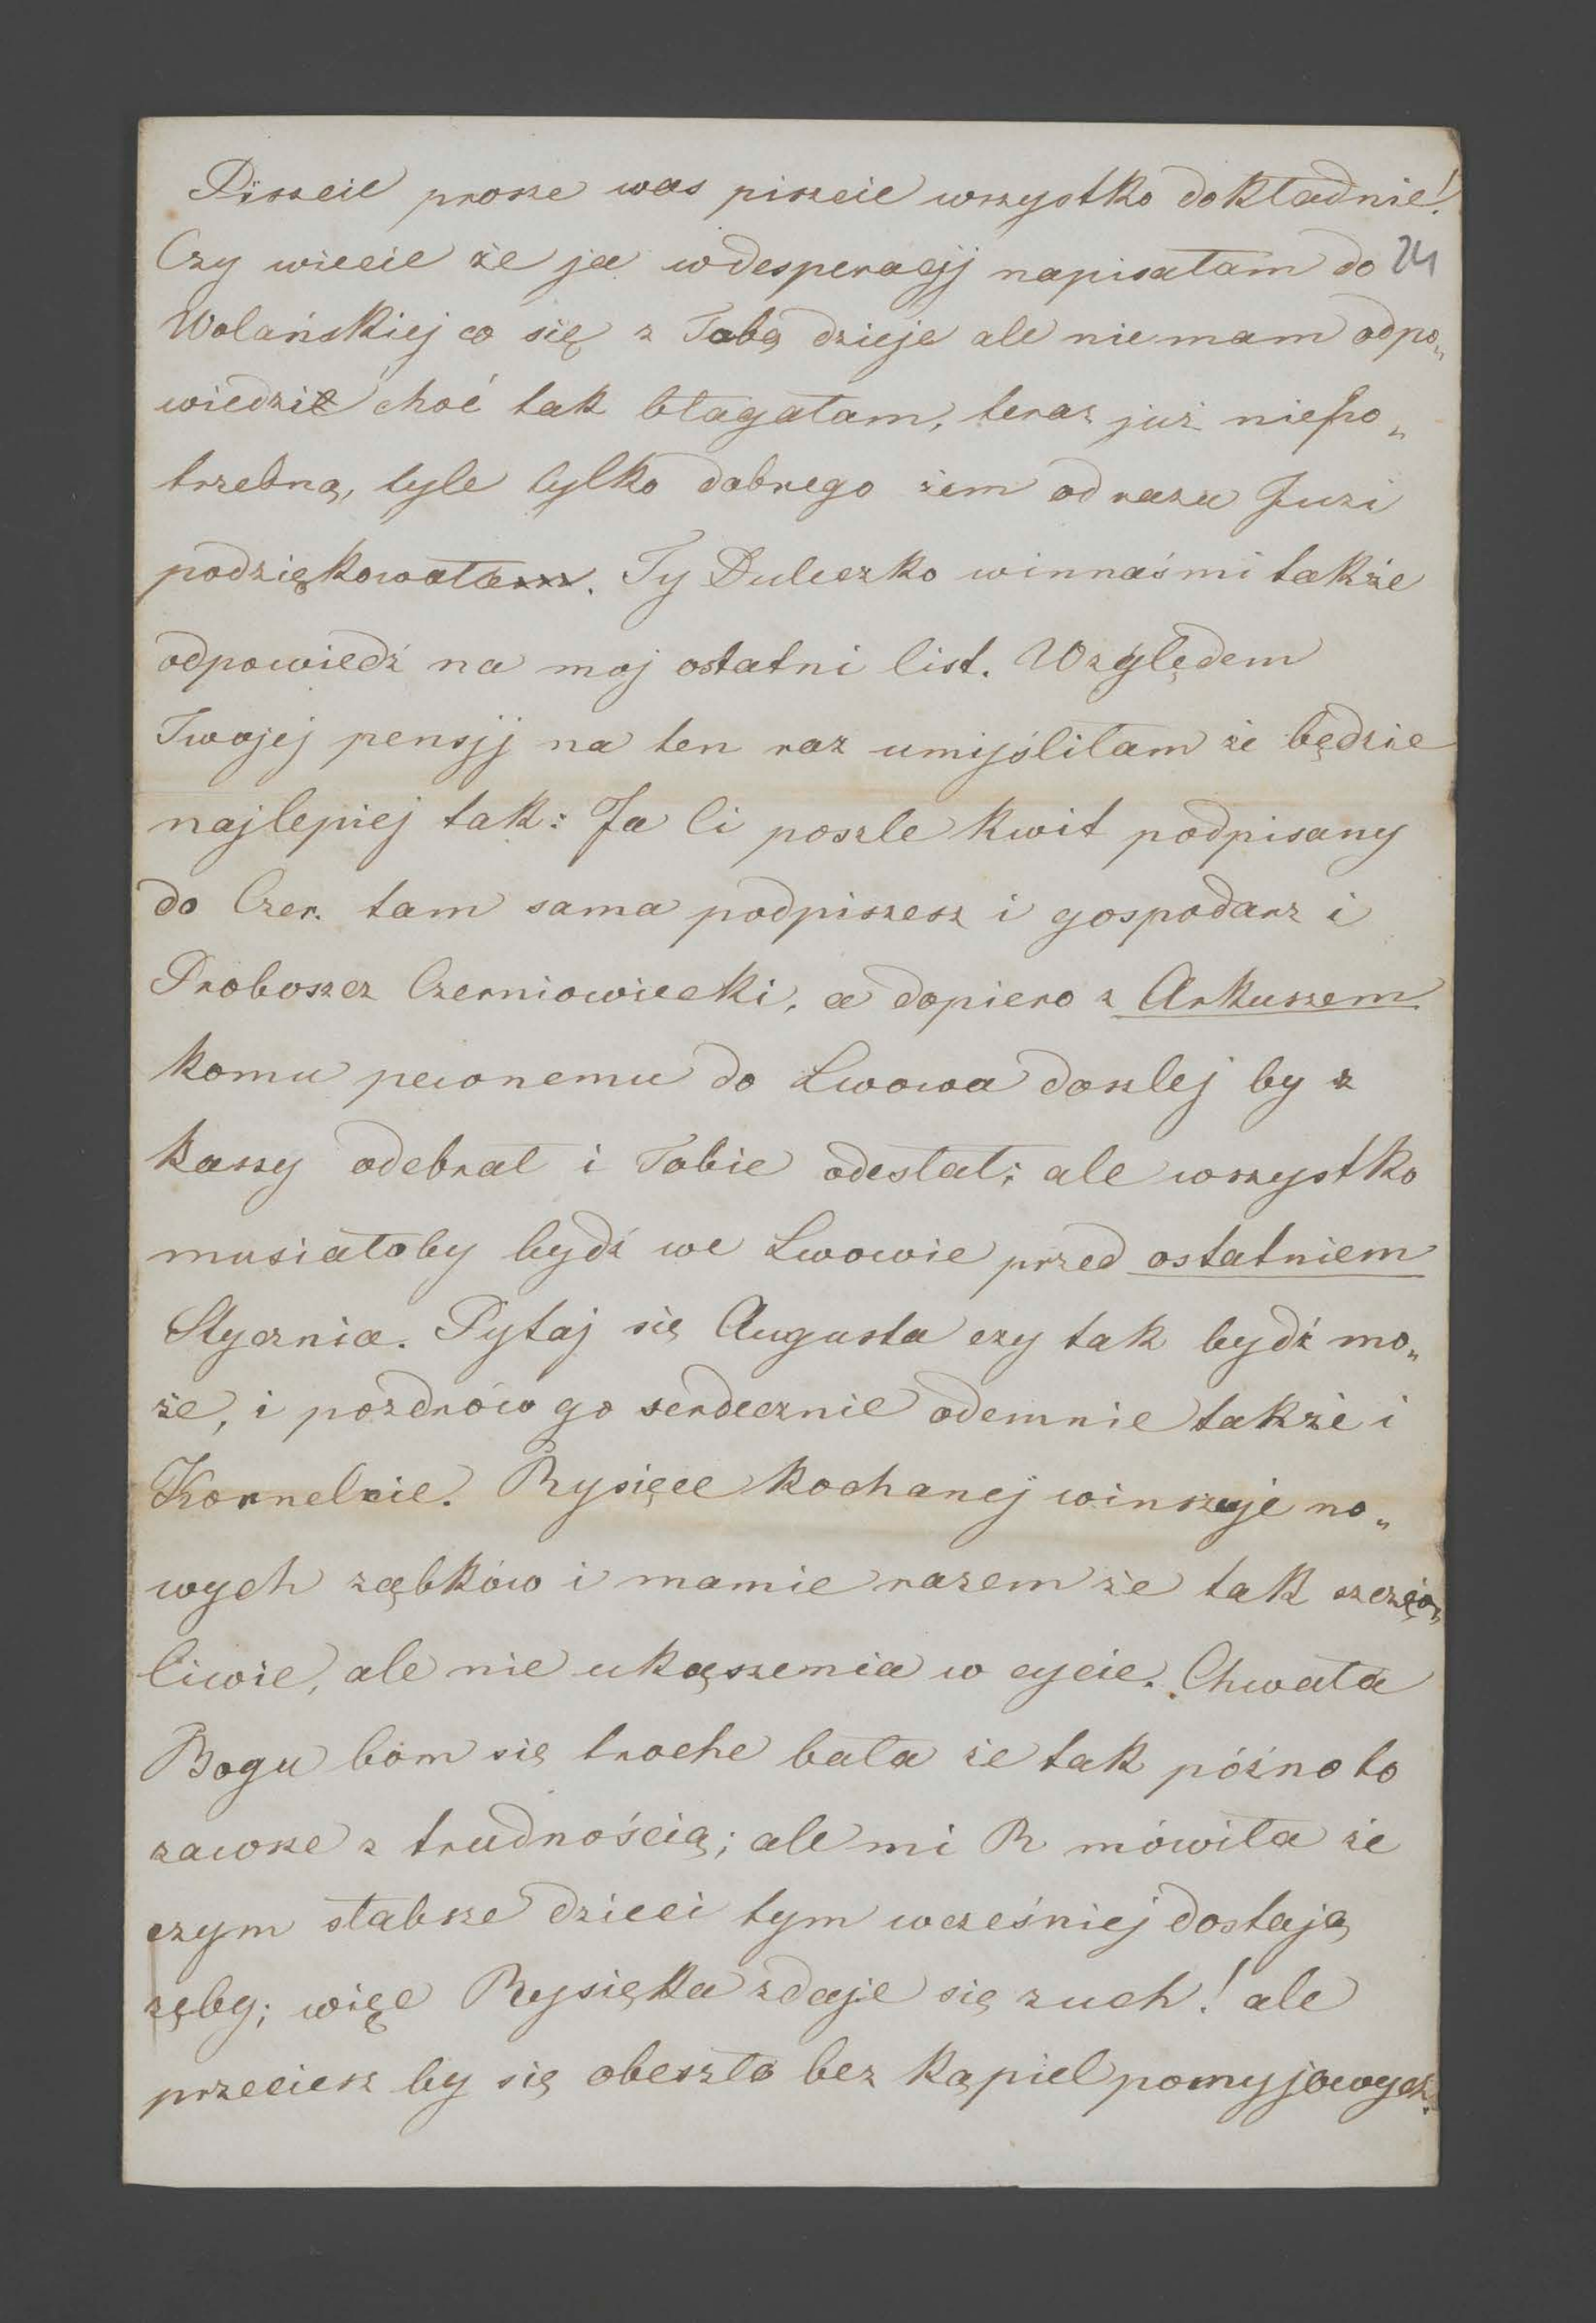 Piszcie prosze was piszcie wszystko dokładnie!
Czy wiecie że ja wdesperacyj napisałam do 24
Wolańskiej co się z Tobą dzieje ale niemam odpo„
wiedzi choć tak błagałam, teraz już niepo„
trzebną, tyle tylko dobrego żem odrazu Juzi
podziękowałam. Ty Duleczko winnaś mi także
odpowiedź na moj ostatni list. Względem
Twojej pensyj na ten raz umyśliłam że będzie
najlepiej tak: Ja Ci poszle kwit podpisany
do Czer. tam sama podpiszesz i gospodarz i
Proboszcz Czerniowiecki, a dopiero z Arkuszem
komu pewnemu do Lwowa doszlej by z
kassy odebrał i Tobie odesłał; ale wszystko
musiałoby bydź we Lwowie przed ostatniem
Stycznia. Pytaj się Augusta czy tak bydź mo„
że, i pozdrów go serdecznie odemnie także i
Kornelcie. Rysięce kochanej winszuje no„
wych ząbków i mamie razem że tak szczęś„
liwie, ale nie ukąszenia w cycie. Chwała
Bogu bom się troche bała że tak późno to
zawsze z trudnością; ale mi R mówiła że
czym słabsze dzieci tym wcześniej dostają
zęby; więc Rysięka zdaje się zuch! ale
przeciesz by się obeszło bez kąpiel pomyjowych.